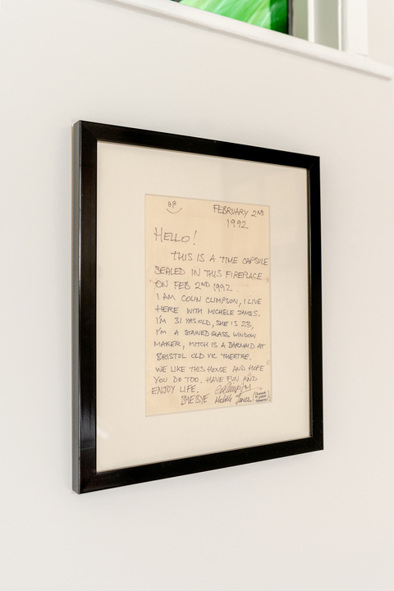 FEBRUARY 2ND
1992
HELLO!
THIS IS A TIME CAPSULE
SEALED IN THIS FIREPLACE
ON FEB 2ND 1992.
I AM COLIN CLIMPSON, I LIVE
HERE WITH MICHELE JAMES.
I'M 31 YRS OLD, SHE IS 28,
I'M A STAINED GLASS WINDOW
MAKER, MITCH IS A BARMAID AT
BRISTOL OLD VIC THEATRE.
WE LIKE THIS HOUSE AND HOPE
YOU DO TOO. HAVE FUN AND
ENJOY LIFE.
BYE BYE